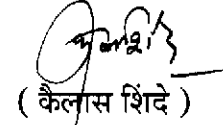 ( कैलास शिंदे )